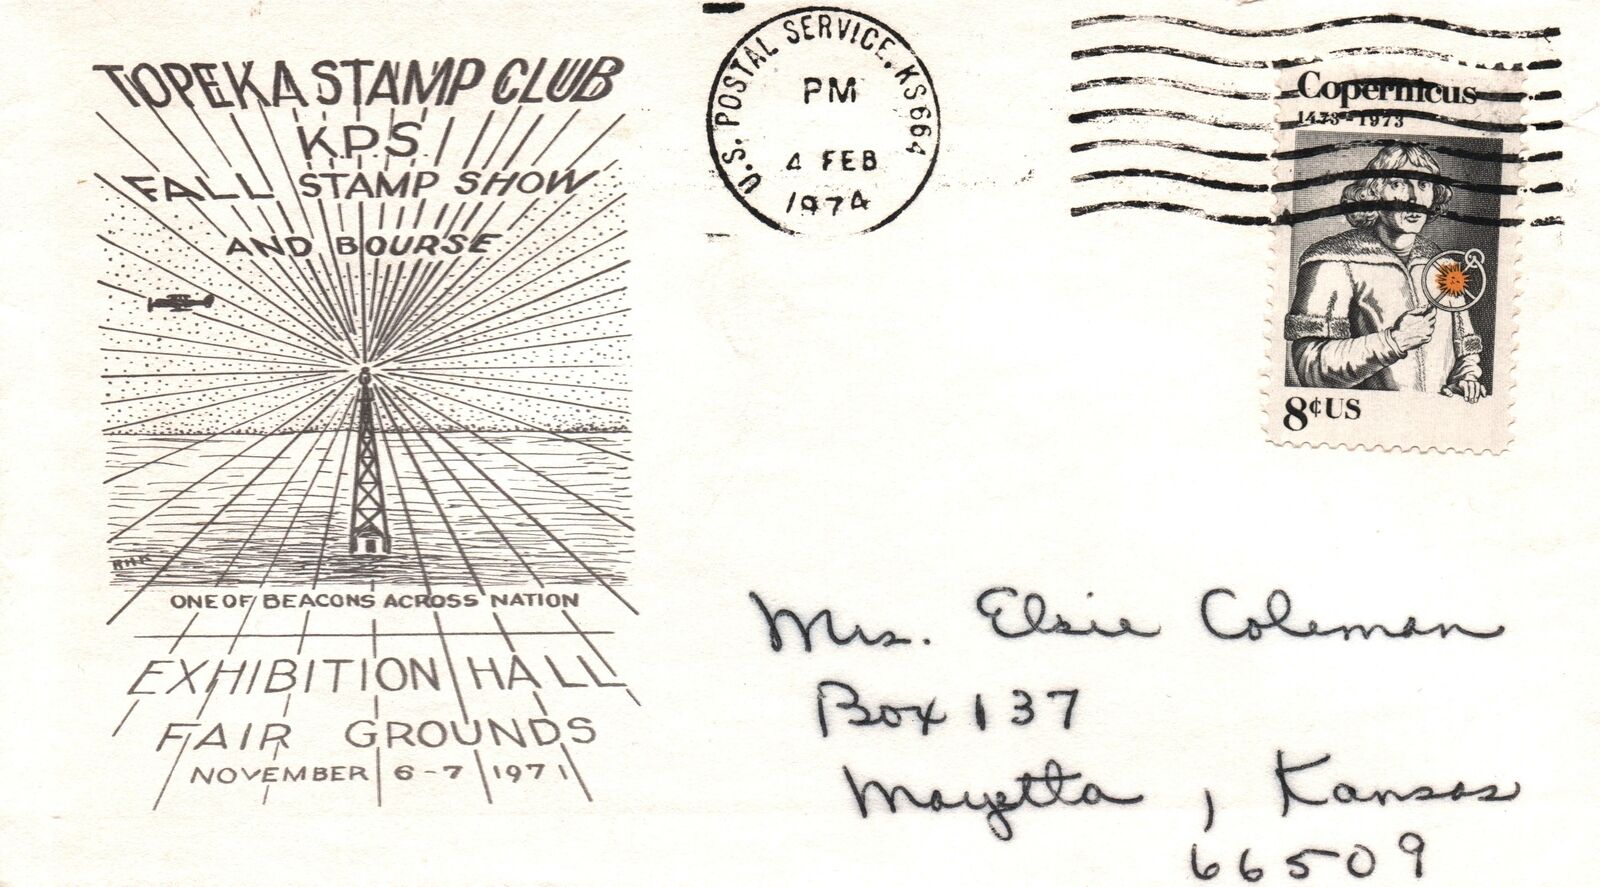 TOPEKA STAMP CLUB
K.P.S.
FALL STAMP SHOW
AND BOURSE
R.H.K.
ONE OF BEACONS ACROSS NATION
EXHIBITION HALL
FAIR GROUNDS
NOVEMBER 6-7 1971
U.S. POSTAL SERVICE, KS 664
PM
4 FEB
1974
Copernicus
1473-1973
8¢ US
Mrs. Elsie Coleman
Box 137
Mayetta, Kansas
66509